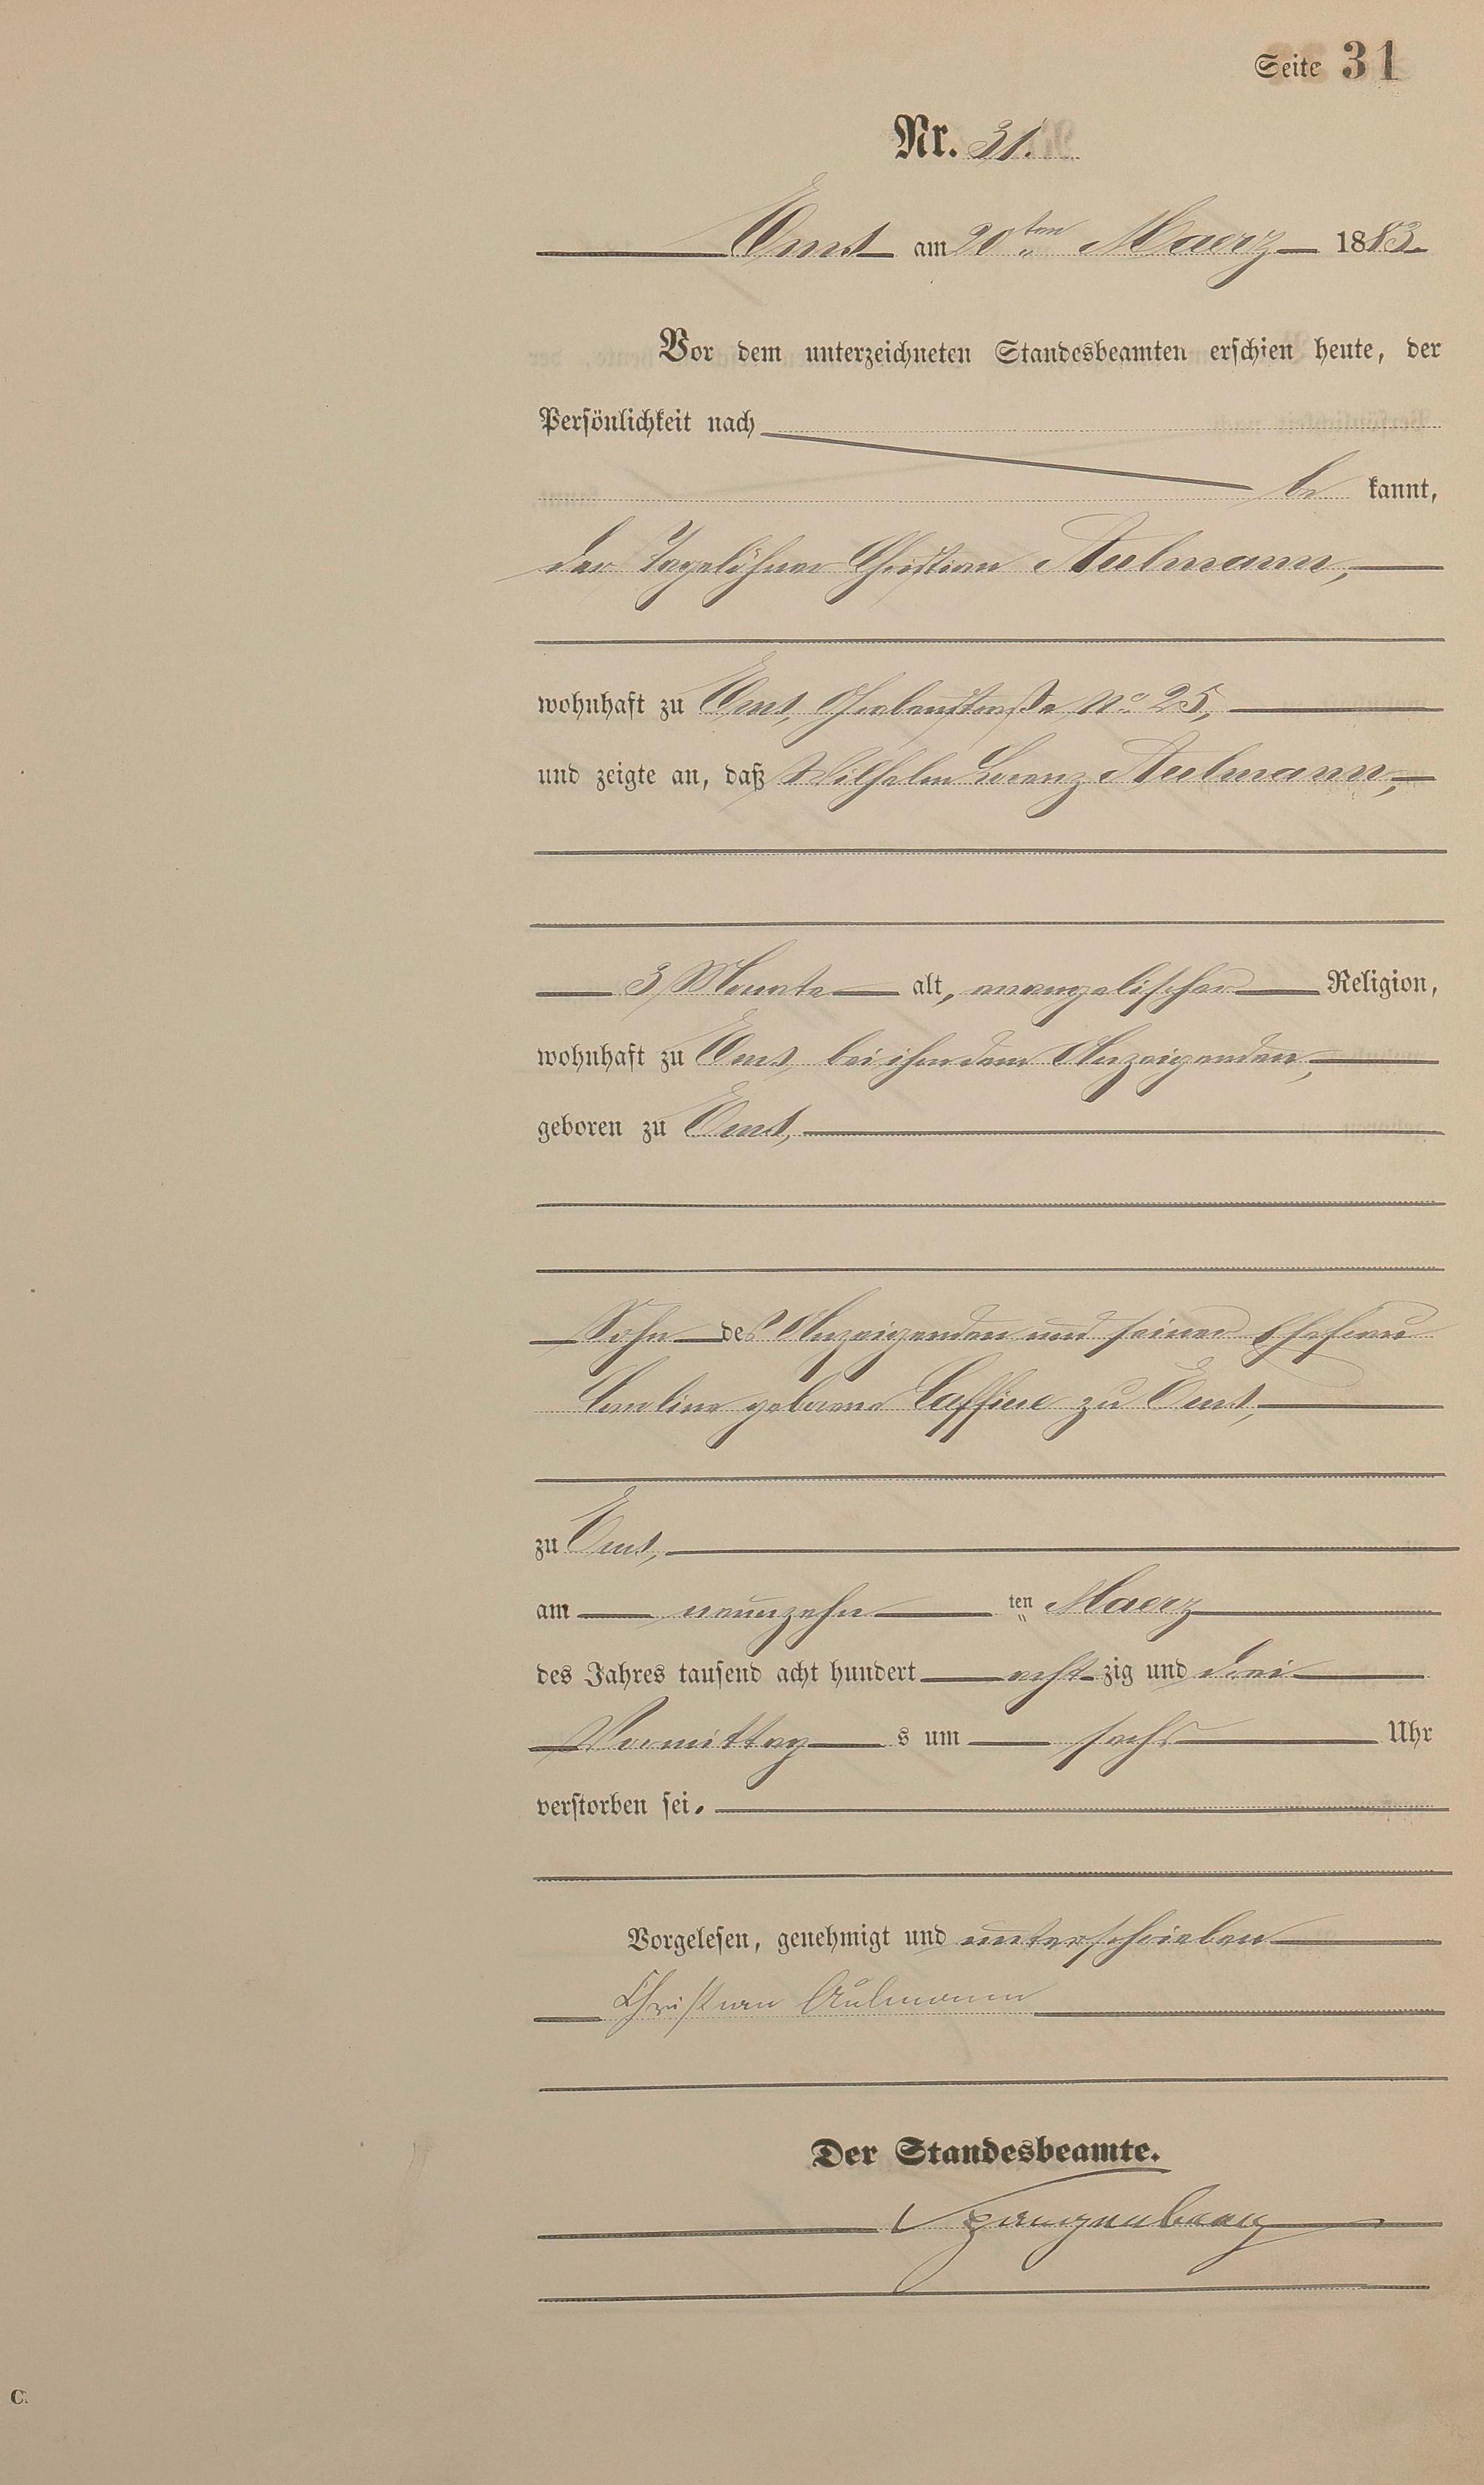 Seite 31
Nr. 31.
Ems am 20ten Maerz 1883.
Vor dem unterzeichneten Standesbeamten erschien heute, der
Persönlichkeit nach
be kannt,
der Tagelöhner Christian Aulmann,
wohnhaft zu Ems, No 25,
und zeigte an, daß Wilhelm Lorenz Aulmann,
3 Monate alt, evangelischer Religion,
wohnhaft zu Ems, bei ihm dem Anzeigenden,
geboren zu Ems,
Sohn des Anzeigenden und seiner Ehefrau
Caroline geborene zu Ems,
zu Ems,
am neunzehn ten Maerz
des Jahres tausend acht hundert acht zig und drei
Vormittag s um sechs Uhr
verstorben sei.
Vorgelesen, genehmigt und unterschrieben
Christian Aulmann
Der Standesbeamte.
Spangenberg
C.